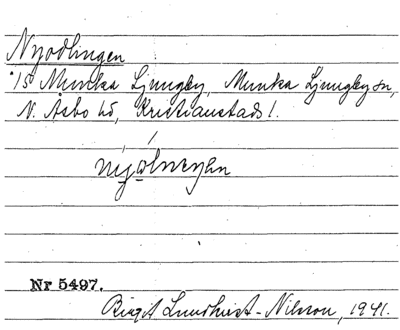 Nyodlingen
15 Munka Ljungby, Munka Ljungby sn,
N. Åsbo hd, Kristianstads l.
Nr 5497.
Birgit Lundkvist-Nilsson, 1941.